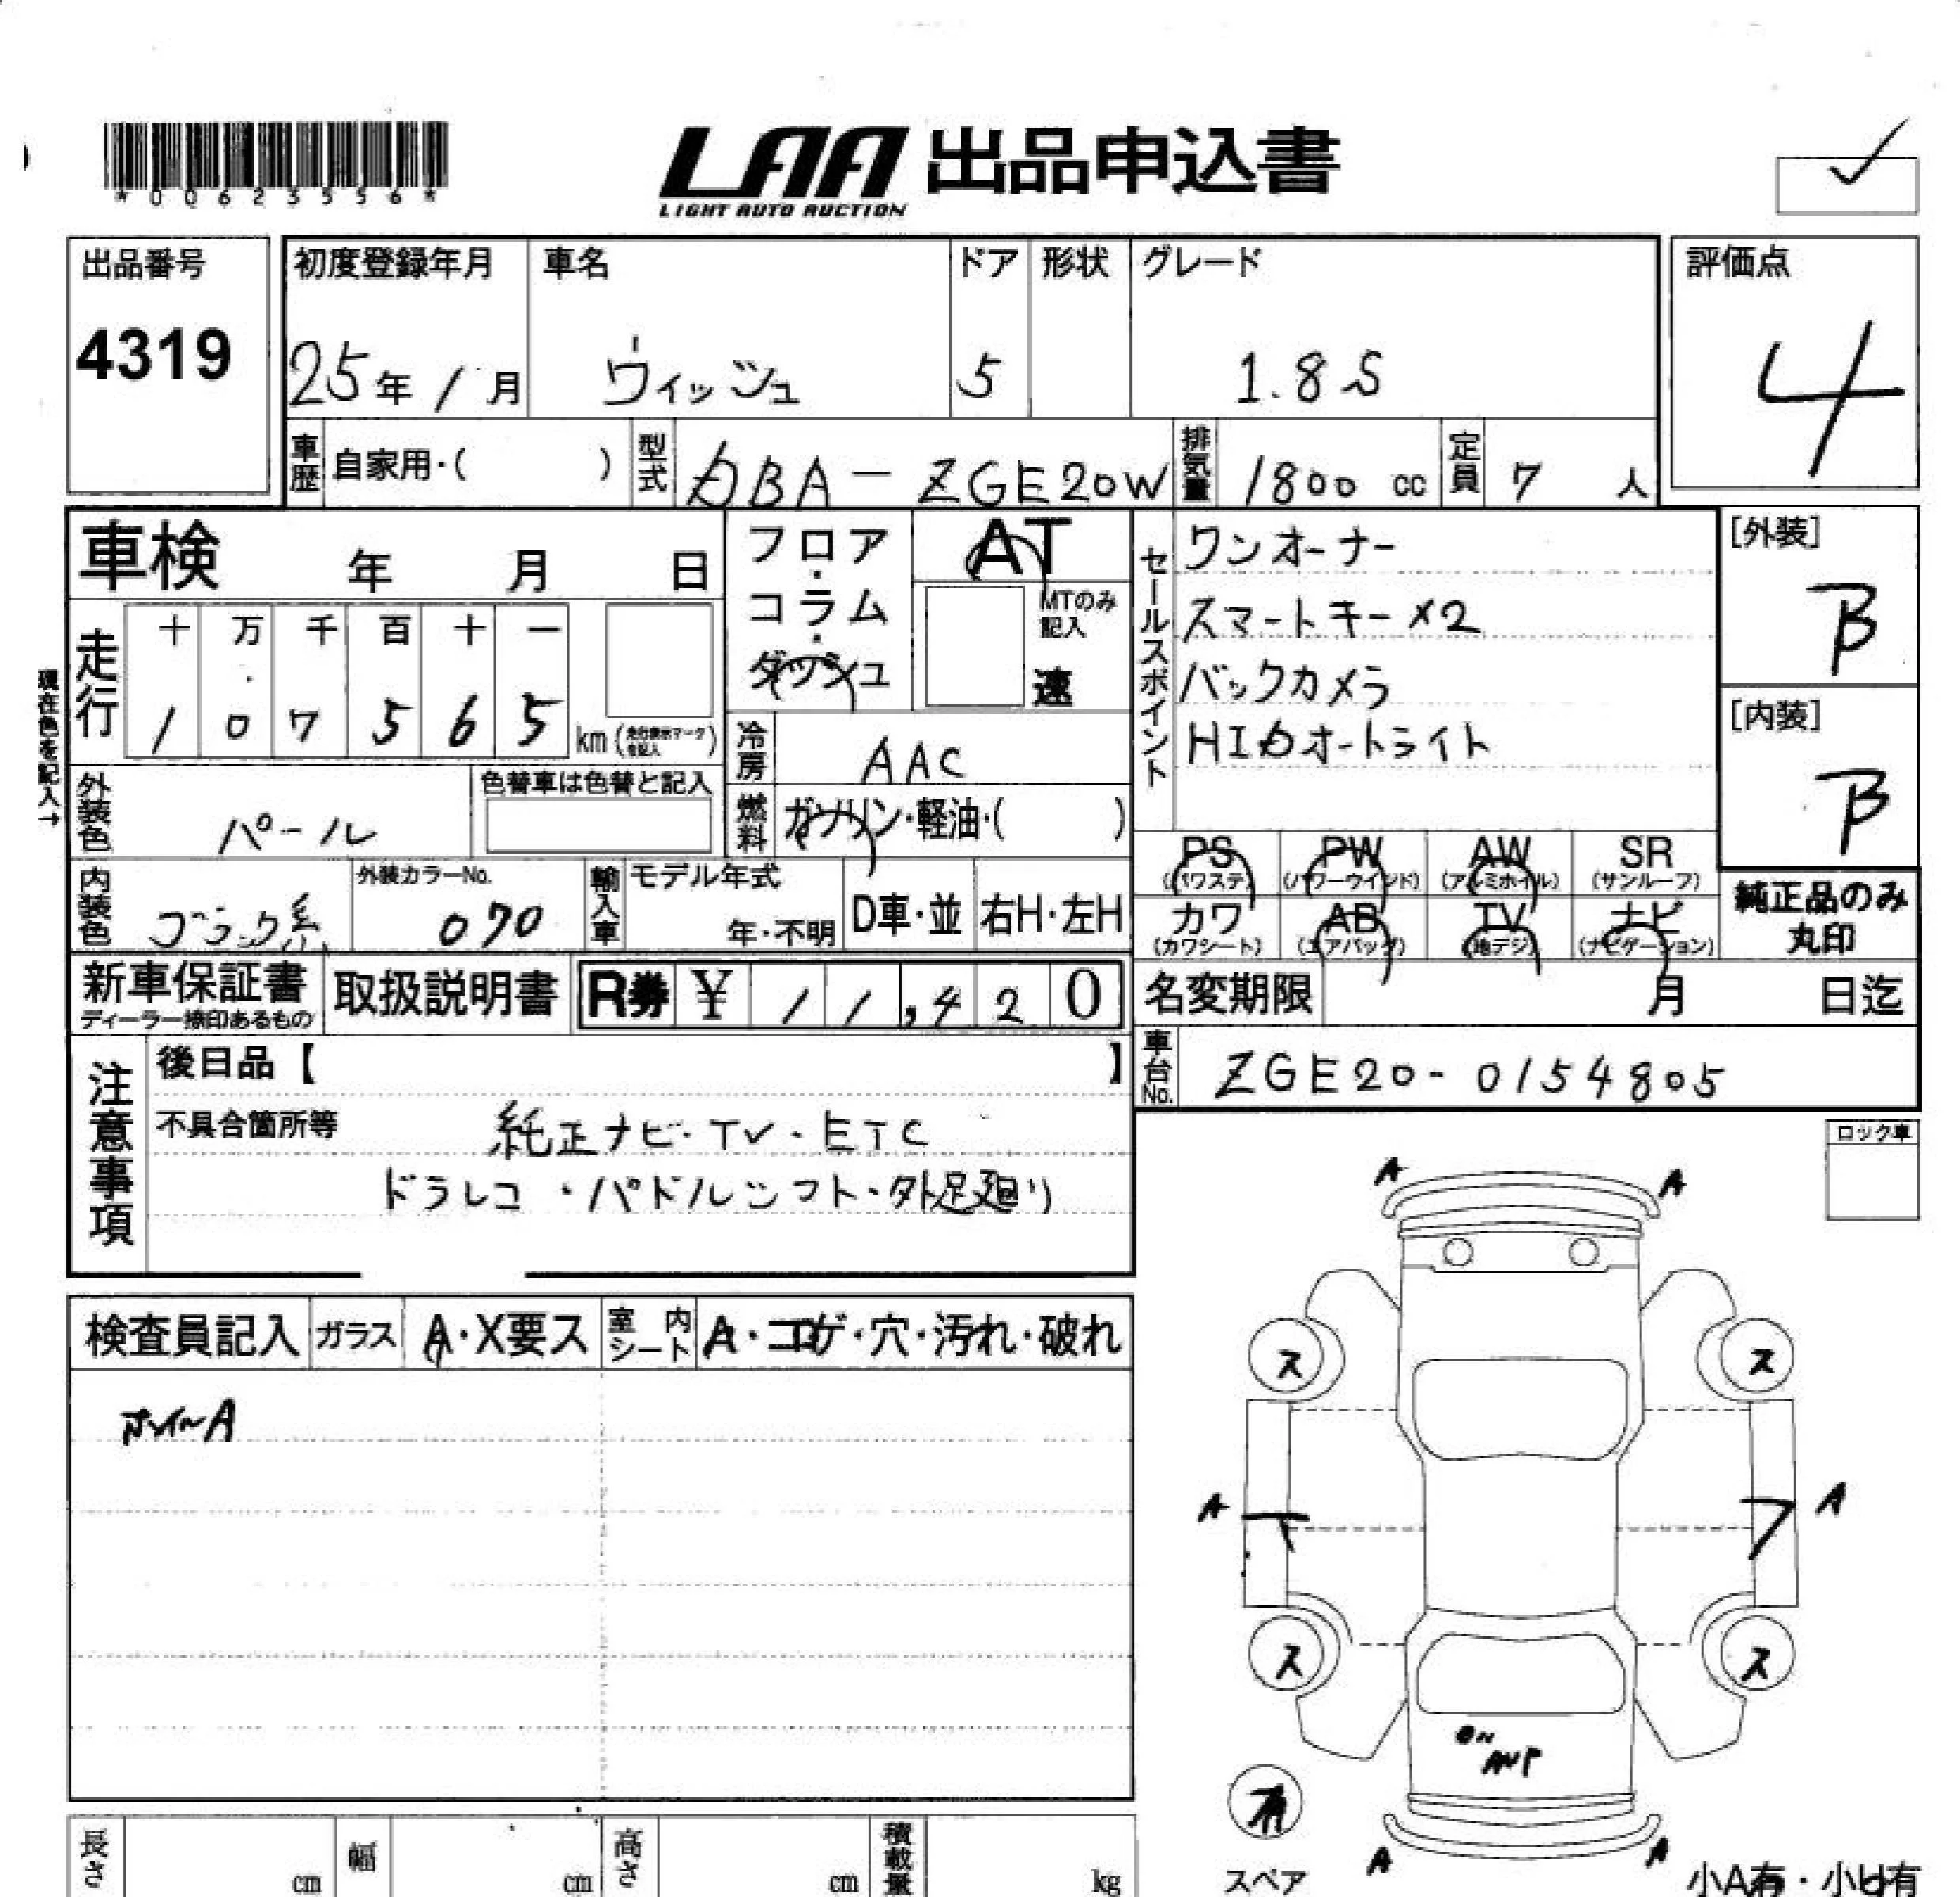 *00623556*
LAA 出品申込書
LIGHT AUTO AUCTION
出品番号
4319
初度登録年月
25年1月
車名
ヴィッシュ
ドア
5
形状
グレード
1.8S
評価点
4
車歴 自家用・( )
型式 DBA-ZGE20W
排気量 1800 cc
定員 7 人
車検 年 月 日
フロア・コラム・ダッシュ
AT
MTのみ記入
速
セールスポイント
ワンオーナー
スマートキー×2
バックカメラ
HIDオートライト
[外装]
B
[内装]
B
現在色を記入→
走行
十 万 千 百 十 一
1 0 7 5 6 5 km(走行表示マークを記入)
冷房 AAC
外装色 パール
色替車は色替と記入
燃料 ガソリン・軽油・( )
PS (パワステ)
PW (パワーウインド)
AW (アルミホイル)
SR (サンルーフ)
内装色 ブラック系
外装カラーNo.
070
輸入車 モデル年式
年・不明
D車・並
右H・左H
カワ (カワシート)
AB (エアバッグ)
TV (地デジ)
ナビ (ナビゲーション)
純正品のみ
丸印
新車保証書
ディーラー捺印あるもの
取扱説明書
R券 ¥ 11,420
名変期限 月 日迄
車台No. ZGE20-0154805
注意事項
後日品【 】
不具合箇所等
純正ナビ・TV・ETC
ドラレコ・パドルシフト・外足廻り
ロック車
A A
検査員記入
ガラス A・X要ス
室内シート A・コゲ・穴・汚れ・破れ
ホイールA
ス ス
A A
ス ス
スペア
A A
小A有・小U有
長さ cm
幅 cm
高さ cm
積載量 kg